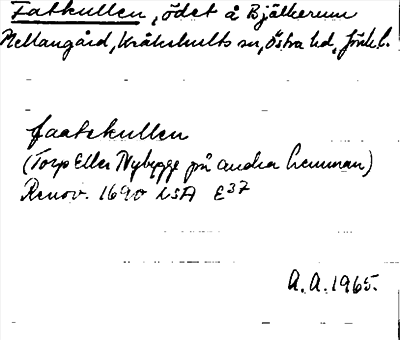 Fatkullen, ödet å Bjälkerum
Mellangård, Kråkshults sn, Östra hd, Jönk l.
faatekullen
(Torp Eller Nybygge på andra hemman)
Renov. 1690 LSA E37
A.A. 1965.